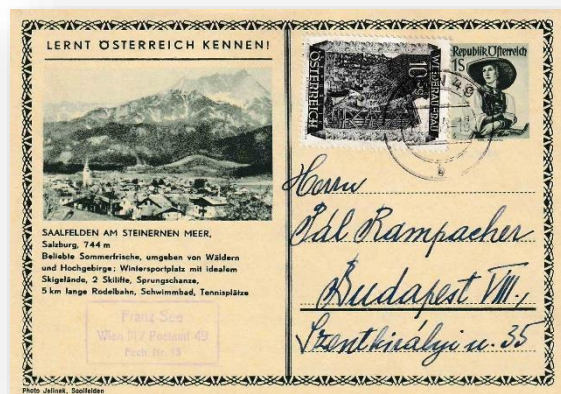 LERNT ÖSTERREICH KENNEN!
SAALFELDEN AM STEINERNEN MEER,
Salzburg, 744 m
Beliebte Sommerfrische, umgeben von Wäldern
und Hochgebirge; Wintersportplatz mit idealem
Skigelände, 2 Skilifte, Sprungschanze,
5 km lange Rodelbahn, Schwimmbad, Tennisplätze
Franz See
Wien III/ Postamt 49
Fach Nr. 15
Photo Jelinek, Saalfelden
ÖSTERREICH
10
Republik Österreich
1S
Herrn
Pál Rampacher
Budapest VIII.,
Szentkirályi u. 35